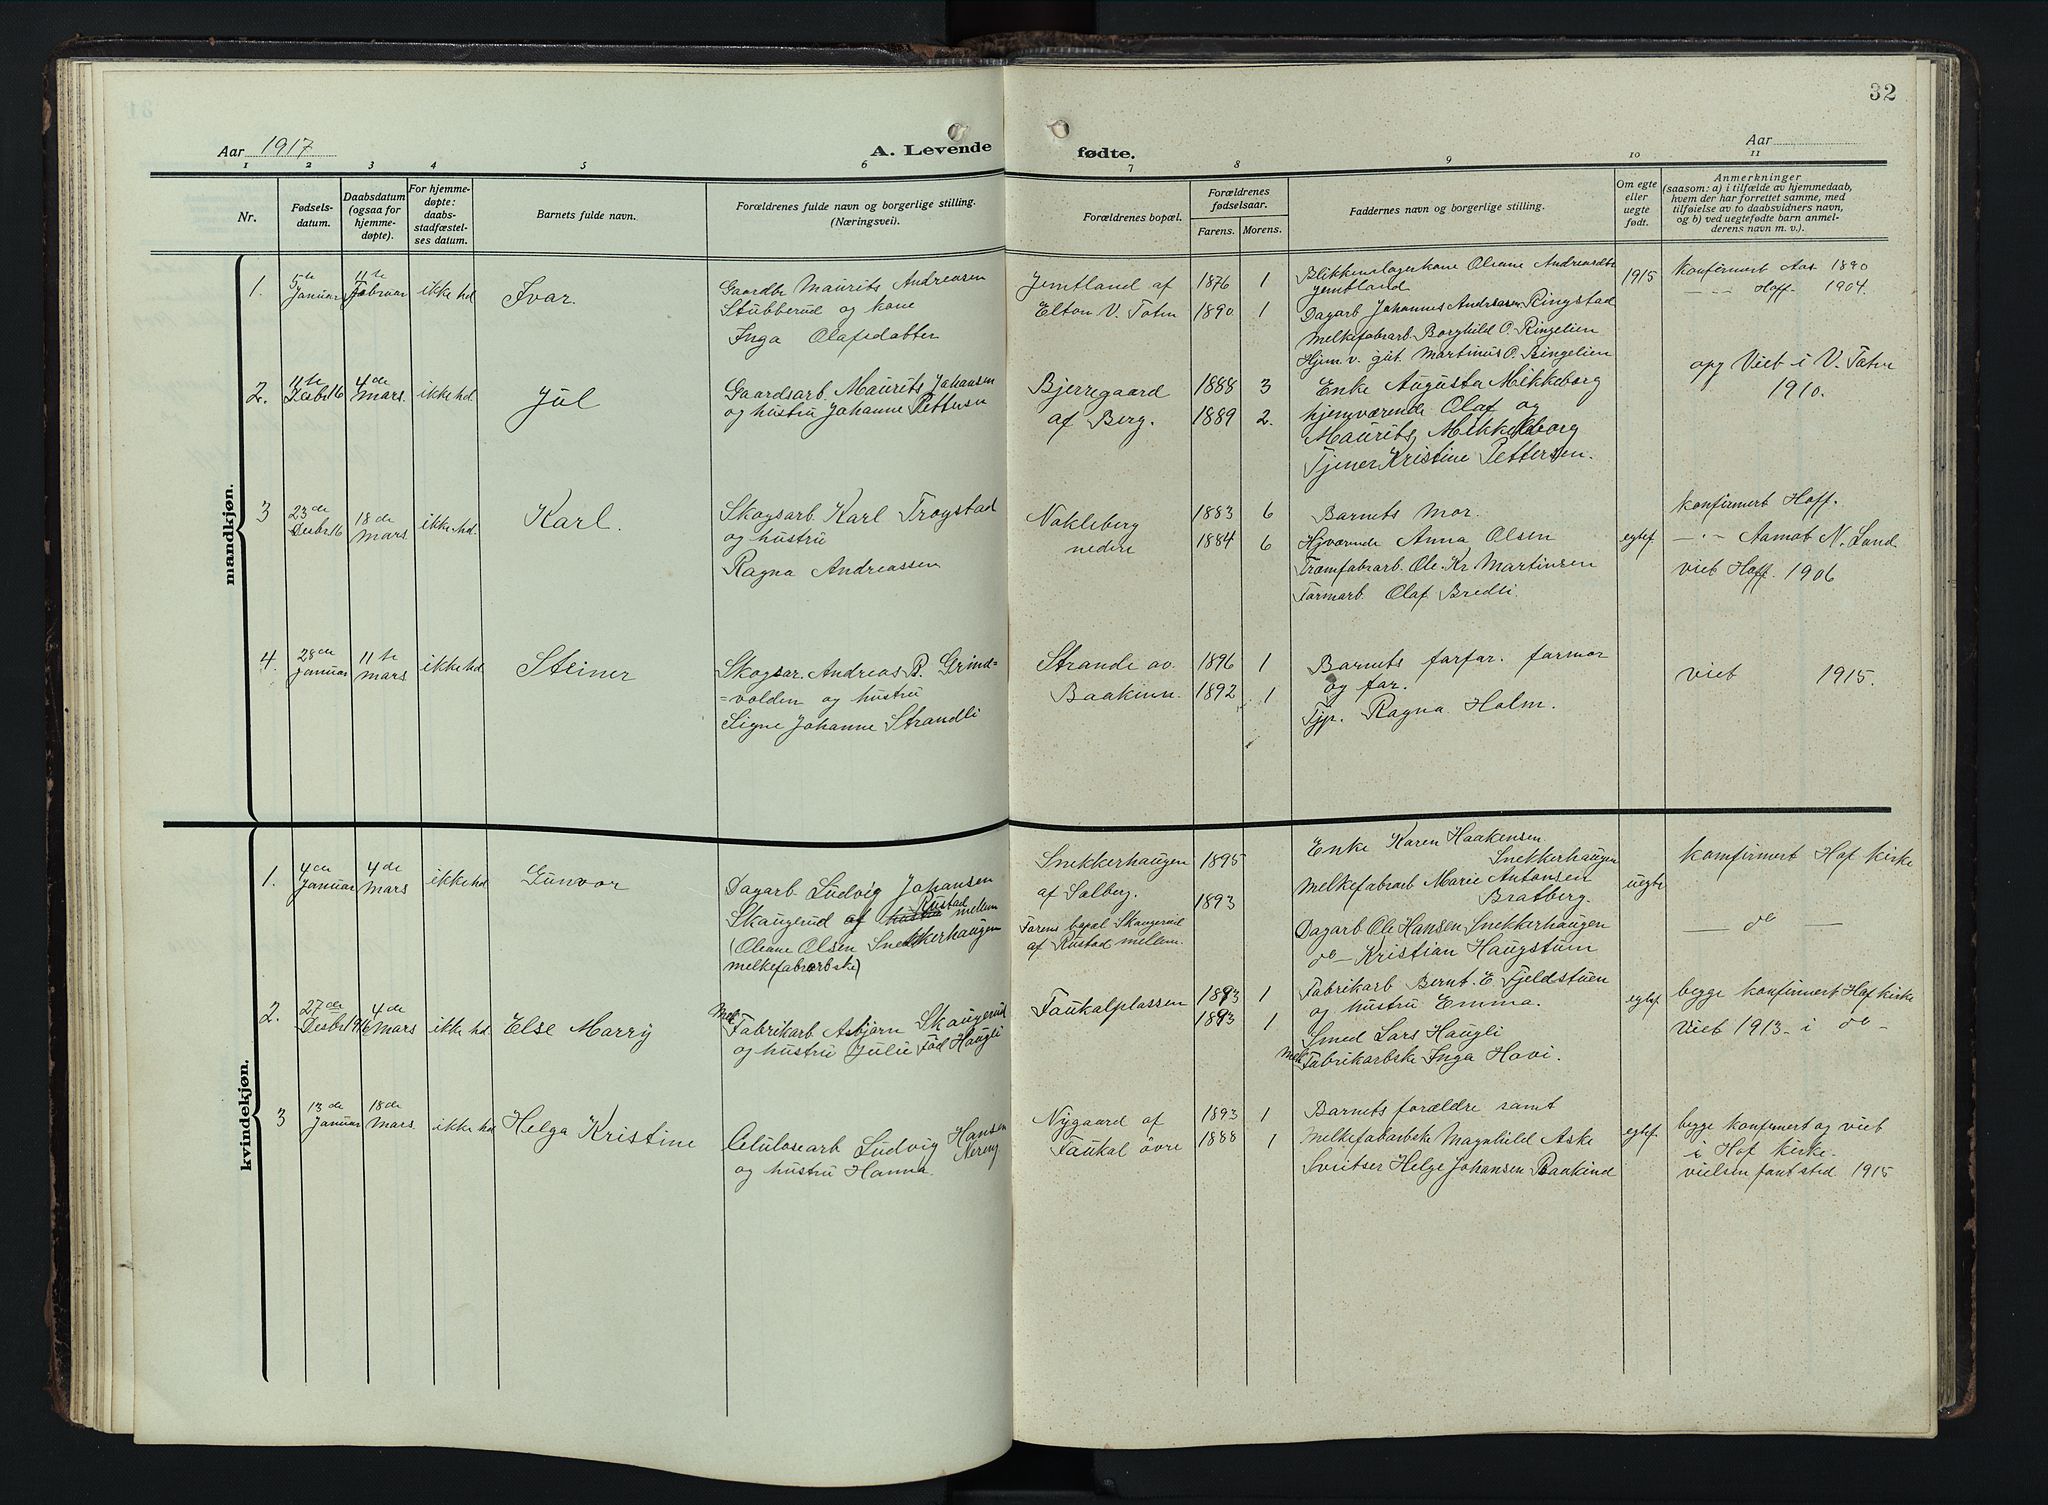 32
Aar 1917
A. Levende
fødte.
Aar
1 2 3 4 5 6 7 8 9 10 11
Nr.
Fødsels-
datum.
Daabsdatum
(ogsaa for
hjemme-
døpte).
For hjemme-
døpte:
daabs-
stadfæstel-
ses datum.
Barnets fulde navn.
Forældrenes fulde navn og borgerlige stilling.
(Næringsvei).
Forældrenes bopæl.
Forældrenes
fødselsaar.
Farens. Morens.
Faddernes navn og borgerlige stilling.
Om egte
eller
uegte
født.
Anmerkninger
(saasom: a) i tilfælde av hjemmedaab,
hvem der har forrettet samme, med
tilføielse av to daabsvidners navn,
og b) ved uegtefødte barn anmel-
derens navn m. v.).
mandkjøn.
1.
5te
Januar
11te
Februar
ikke hd
Ivar.
Gaardbr Maurits Andreasen
Stubberud og kone
Inga Olafsdatter
Jemtland af
Elton V. Toten
1876 1
1890 1
Blikkenslagerkone Oleane Andreasdtr
Jemtland
Dagarb Johannes Andreasen Ringstad
Melkefabrarb. Borghild O. Ringelien
Hjem. v. gut. Martinus O. Ringelien
1915
Konfirmert Aas 1890
— · — Hoff. 1904.
2.
11te
Desbr 16
4de
Mars.
ikke hd
Jul
Gaardsarb. Maurits Johansen
og hustru Johanne Pettersen
Bjerregaard
af Berg.
1888 3
1889 2.
Enke Augusta Mikkelborg
hjemværende Olaf og
Maurits Mikkelborg
Tjener Kristine Pettersen.
opg Viet i V. Toten
1910.
3
23de
Desbr 16
18de
Mars
ikke hd.
Karl.
Skogsarb. Karl Trogstad
og hustru
Ragna Andreassen
Nokleberg
nedre
1883 6
1884 6
Barnets Mor.
Hjværende Anna Olsen
Træmfabrarb. Ole. Kr Martinsen
Tarmarb. Olaf Bredli.
egtef.
Konfirmert Hoff.
— · — Aamot N. Land
viet Hoff. 1906
4.
28de
Januar
11te
Mars
ikke hd
Steiner
Skogsar. Andreas P. Grind=
=volden og hustru
Signe Johanne Strandli
Strande av.
Baakinn.
1896 1
1892 1
Barnets farfar. farmor
og far.
Tjp. Ragna Holm.
viet 1915.
kvindekjøn.
1.
4de
Januar
4de
Mars
ikke hd
Gunvor
Dagarb Ludvig Johansen
Skaugerud af Rustad mellem
(Oleane Olsen Snekkerhaugen
melkefabrarbske)
Snekkerhaugen
af Solberg.
Farens bopæl Skaugerud
af Rustad mellem.
1895
1893
Enke Karen Haakensen
Snekkerhaugen
Melkefabrarb Marie Antonsen
Bratberg.
Dagarb Ole Hansen Snekkerhaugen
do — Kristian Haugstum
uegte
Konfirmert Hof kirke
— do —
2.
27de
Desbr 1916
4de
Mars
ikke hd
Else Marry
Melk
Fabrikarb Asbjørn Skaugerud
og hustru Julie Fød Haugli
Faukalplassen
1893 1
1893 1
Fabrikarb Bernt. E Fjeldstuen
og hustru Emma.
Smed Lars Haugli
Melk Fabrikarbske Inga Hovi.
egtef
begge konfirmert Hof kirke
Viet 1913 - i do -
3
13de
Januar
18de
Mars.
ikke hd
Helga Kristine
Celulosearb Ludvig Hansen
Nereng
og hustru Hanna.
Nygaard af
Faukal øvre
1893 1
1888 1
Barnets forældre samt
Melkefabarbske Magnhild Aske
Sveitser Helge Johansen Baakind
egtef.
begge konfirmert og viet
i Hof kirke.
vielsen fant sted 1915